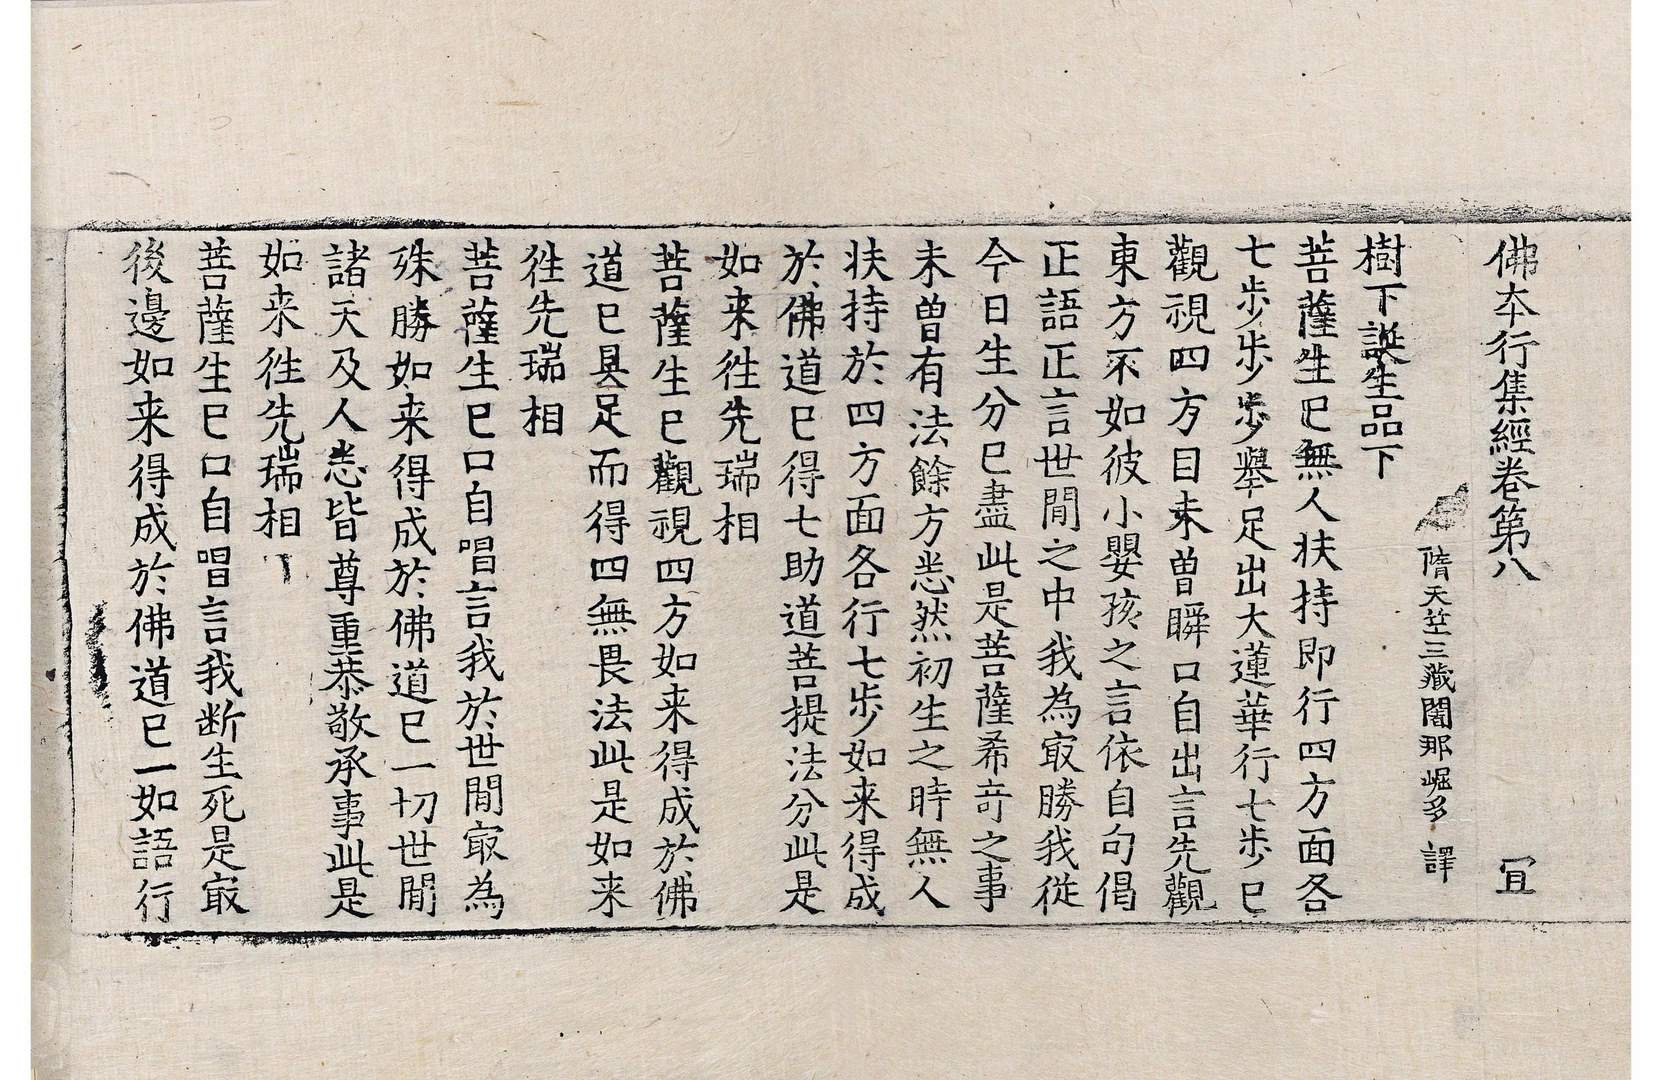 佛夲行集經卷第八 冝
隋天竺三藏闍那崛多 譯
樹下誕生品下
菩薩生已無人扶持即行四方面各
七步步步舉足出大蓮華行七步已
觀視四方目未曾瞬口自出言先觀
東方不如彼小嬰孩之言依自句偈
正語正言世閒之中我為㝡勝我從
今日生分已盡此是菩薩希竒之事
未曾有法餘方悉然初生之時無人
扶持於四方面各行七步如来得成
於佛道已得七助道菩提法分此是
如来徃先瑞相
菩薩生已觀視四方如来得成於佛
道已具足而得四無畏法此是如来
徃先瑞相
菩薩生已口自唱言我於世閒㝡為
殊勝如来得成於佛道已一切世閒
諸天及人悉皆尊重恭敬承事此是
如来徃先瑞相
菩薩生已口自唱言我断生死是㝡
後邊如来得成於佛道已一如語行